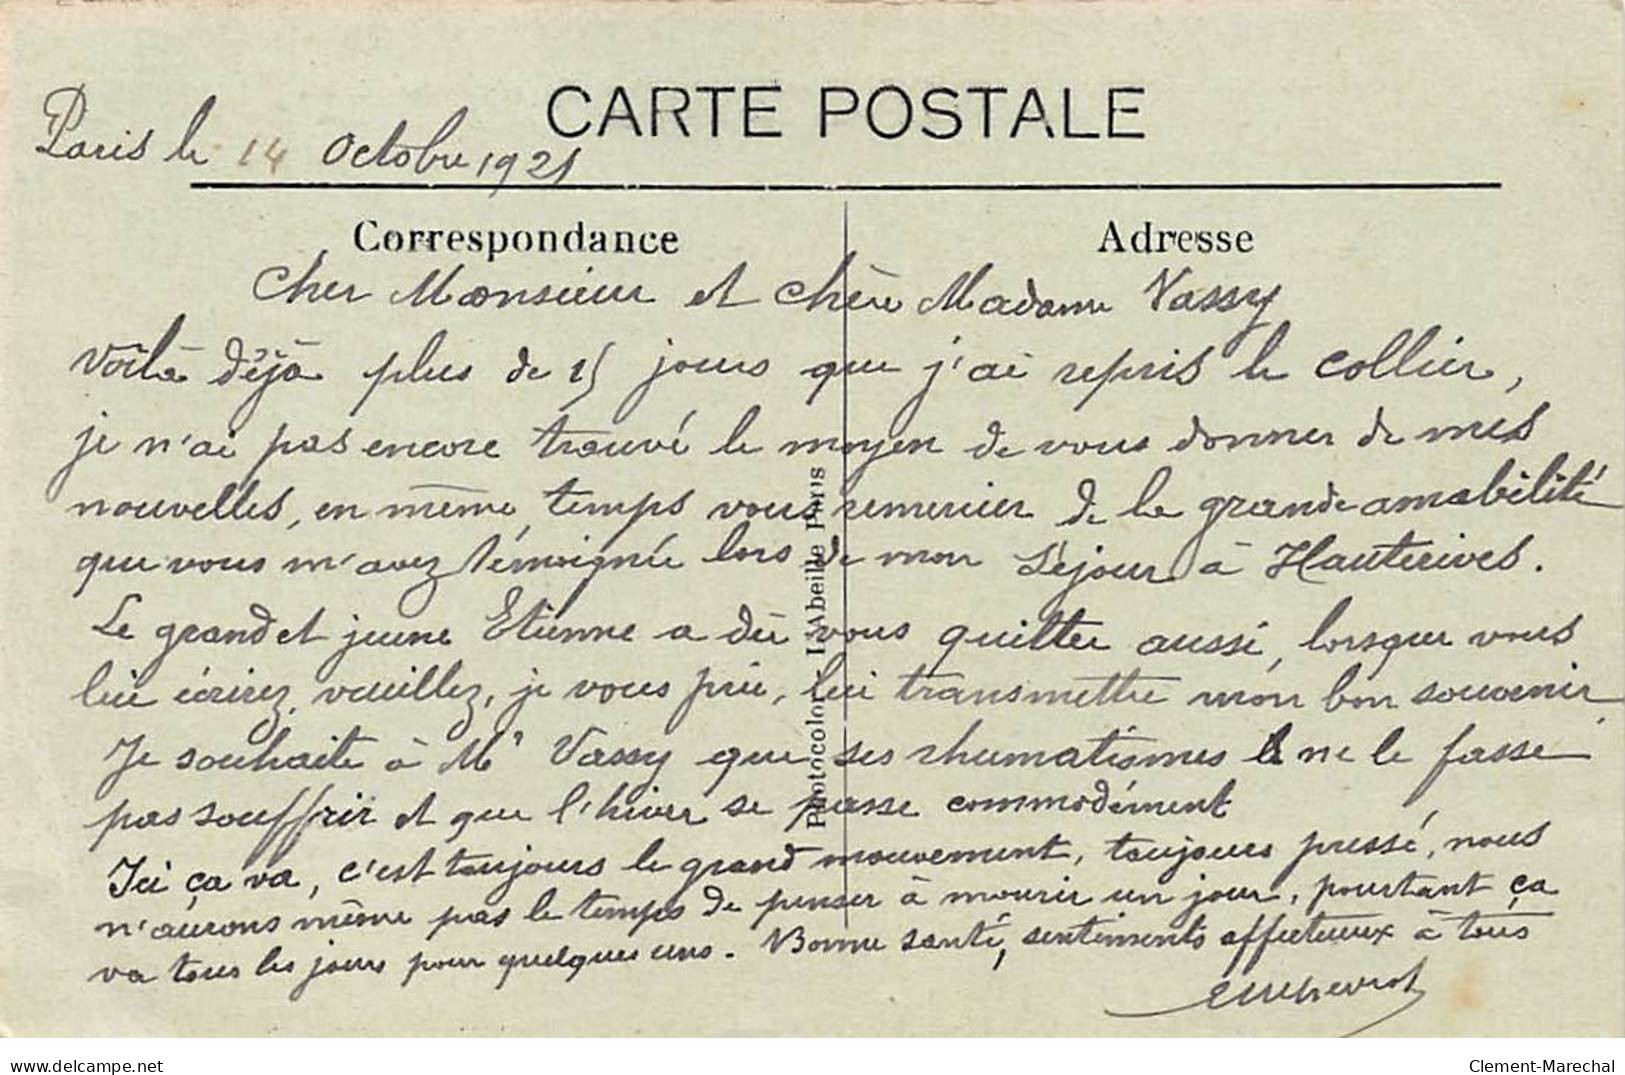 CARTE POSTALE
Paris le 14 Octobre 1921
Correspondance
Adresse
Cher Monsieur et chère Madame Vassy
Voilà déjà plus de 15 jours que j'ai repris le collier,
je n'ai pas encore trouvé le moyen de vous donner de mes
nouvelles, en même temps vous remercier de la grande amabilité
que vous m'avez témoignée lors de mon séjour à Hauterives.
Le grand et jeune Etienne a dû vous quitter aussi, lorsque vous
lui écrirez, veuillez, je vous prie, lui transmettre mon bon souvenir.
Je souhaite à Mr Vassy que ses rhumatismes ne le fasse
pas souffrir et que l'hiver se passe commodément
Ici ça va, c'est toujours le grand mouvement, toujours pressé, nous
n'aurons même pas le temps de penser à mourir un jour, pourtant ça
va tous les jours pour quelques uns. Bonne santé, sentiments affectueux à tous
Photocolor - L'Abeille Paris
delcampe.net
Clement-Marechal